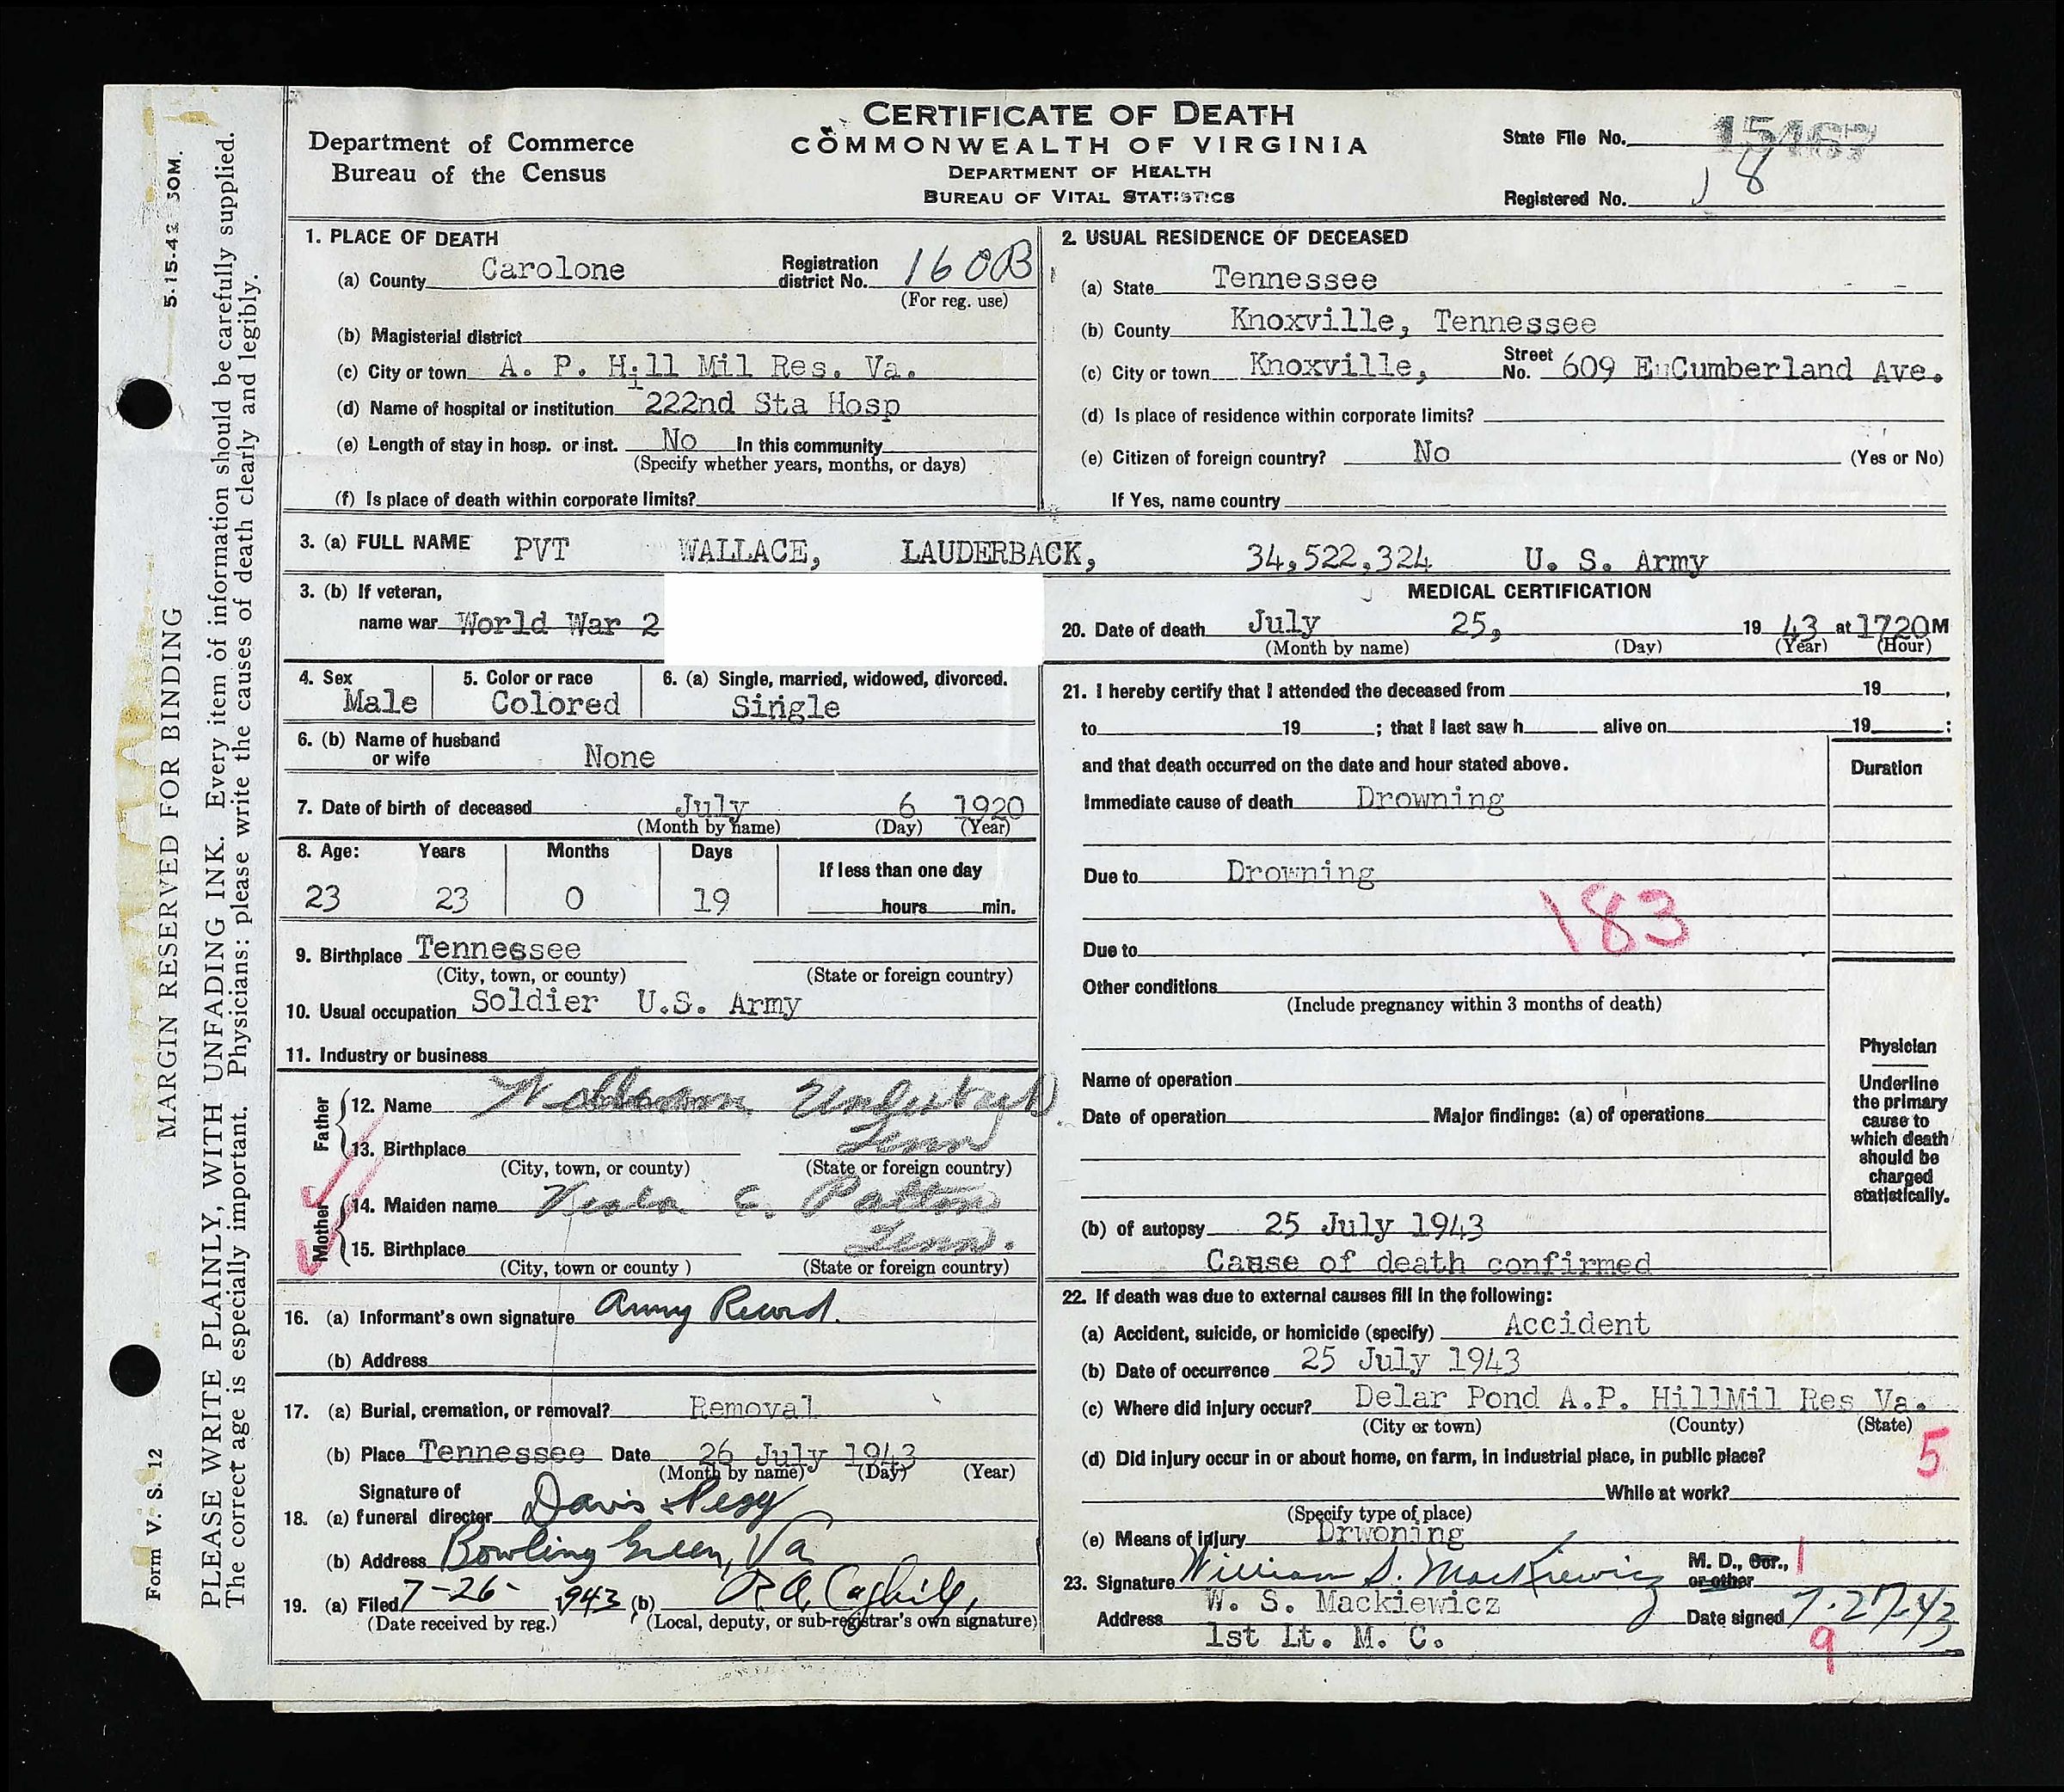 5-15-42 50M.
MARGIN RESERVED FOR BINDING
PLEASE WRITE PLAINLY, WITH UNFADING INK. Every item of information should be carefully supplied.
The correct age is especially important. Physicians: please write the causes of death clearly and legibly.
Form V. S. 12
Department of Commerce
Bureau of the Census
CERTIFICATE OF DEATH
COMMONWEALTH OF VIRGINIA
DEPARTMENT OF HEALTH
BUREAU OF VITAL STATISTICS
State File No. 15467
Registered No. 18
1. PLACE OF DEATH
(a) County Carolone Registration district No. 160B
(For reg. use)
(b) Magisterial district
(c) City or town A. P. Hill Mil Res. Va.
(d) Name of hospital or institution 222nd Sta Hosp
(e) Length of stay in hosp. or inst. No In this community
(Specify whether years, months, or days)
(f) Is place of death within corporate limits?
2. USUAL RESIDENCE OF DECEASED
(a) State Tennessee
(b) County Knoxville, Tennessee
(c) City or town Knoxville, Street No. 609 E Cumberland Ave.
(d) Is place of residence within corporate limits?
(e) Citizen of foreign country? No (Yes or No)
If Yes, name country
3. (a) FULL NAME PVT WALLACE, LAUDERBACK, 34,522,324 U. S. Army
3. (b) If veteran,
name war World War 2
4. Sex Male
5. Color or race Colored
6. (a) Single, married, widowed, divorced. Single
6. (b) Name of husband or wife None
7. Date of birth of deceased July 6 1920
(Month by name) (Day) (Year)
8. Age: Years Months Days If less than one day
23 23 0 19 hours min.
9. Birthplace Tennessee
(City, town, or county) (State or foreign country)
10. Usual occupation Soldier U.S. Army
11. Industry or business
Father
12. Name
13. Birthplace Tenn
(City, town, or county) (State or foreign country)
Mother
14. Maiden name E. Patton
15. Birthplace Tenn.
(City, town or county) (State or foreign country)
16. (a) Informant's own signature Army Record.
(b) Address
17. (a) Burial, cremation, or removal? Removal
(b) Place Tennessee Date 26 July 1943
(Month by name) (Day) (Year)
Signature of
18. (a) funeral director Davis &
(b) Address Bowling Green, Va
19. (a) Filed 7-26- 1943 (b) R A
(Date received by reg.) (Local, deputy, or sub-registrar's own signature)
MEDICAL CERTIFICATION
20. Date of death July 25, 19 43 at 1720 M
(Month by name) (Day) (Year) (Hour)
21. I hereby certify that I attended the deceased from 19 ,
to 19 ; that I last saw h alive on 19 ;
and that death occurred on the date and hour stated above.
Duration
Immediate cause of death Drowning
Due to Drowning
183
Due to
Other conditions
(Include pregnancy within 3 months of death)
Name of operation
Date of operation Major findings: (a) of operations
Physician
Underline
the primary
cause to
which death
should be
charged
statistically.
(b) of autopsy 25 July 1943
Cause of death confirmed
22. If death was due to external causes fill in the following:
(a) Accident, suicide, or homicide (specify) Accident
(b) Date of occurrence 25 July 1943
(c) Where did injury occur? Delar Pond A.P. HillMil Res Va.
(City or town) (County) (State)
(d) Did injury occur in or about home, on farm, in industrial place, in public place? 5
While at work?
(Specify type of place)
(e) Means of injury Drwoning
23. Signature William S. Mackiewicz M. D., Cor., or other 1
Address W. S. Mackiewicz Date signed 7-27-43
1st Lt. M. C. 9